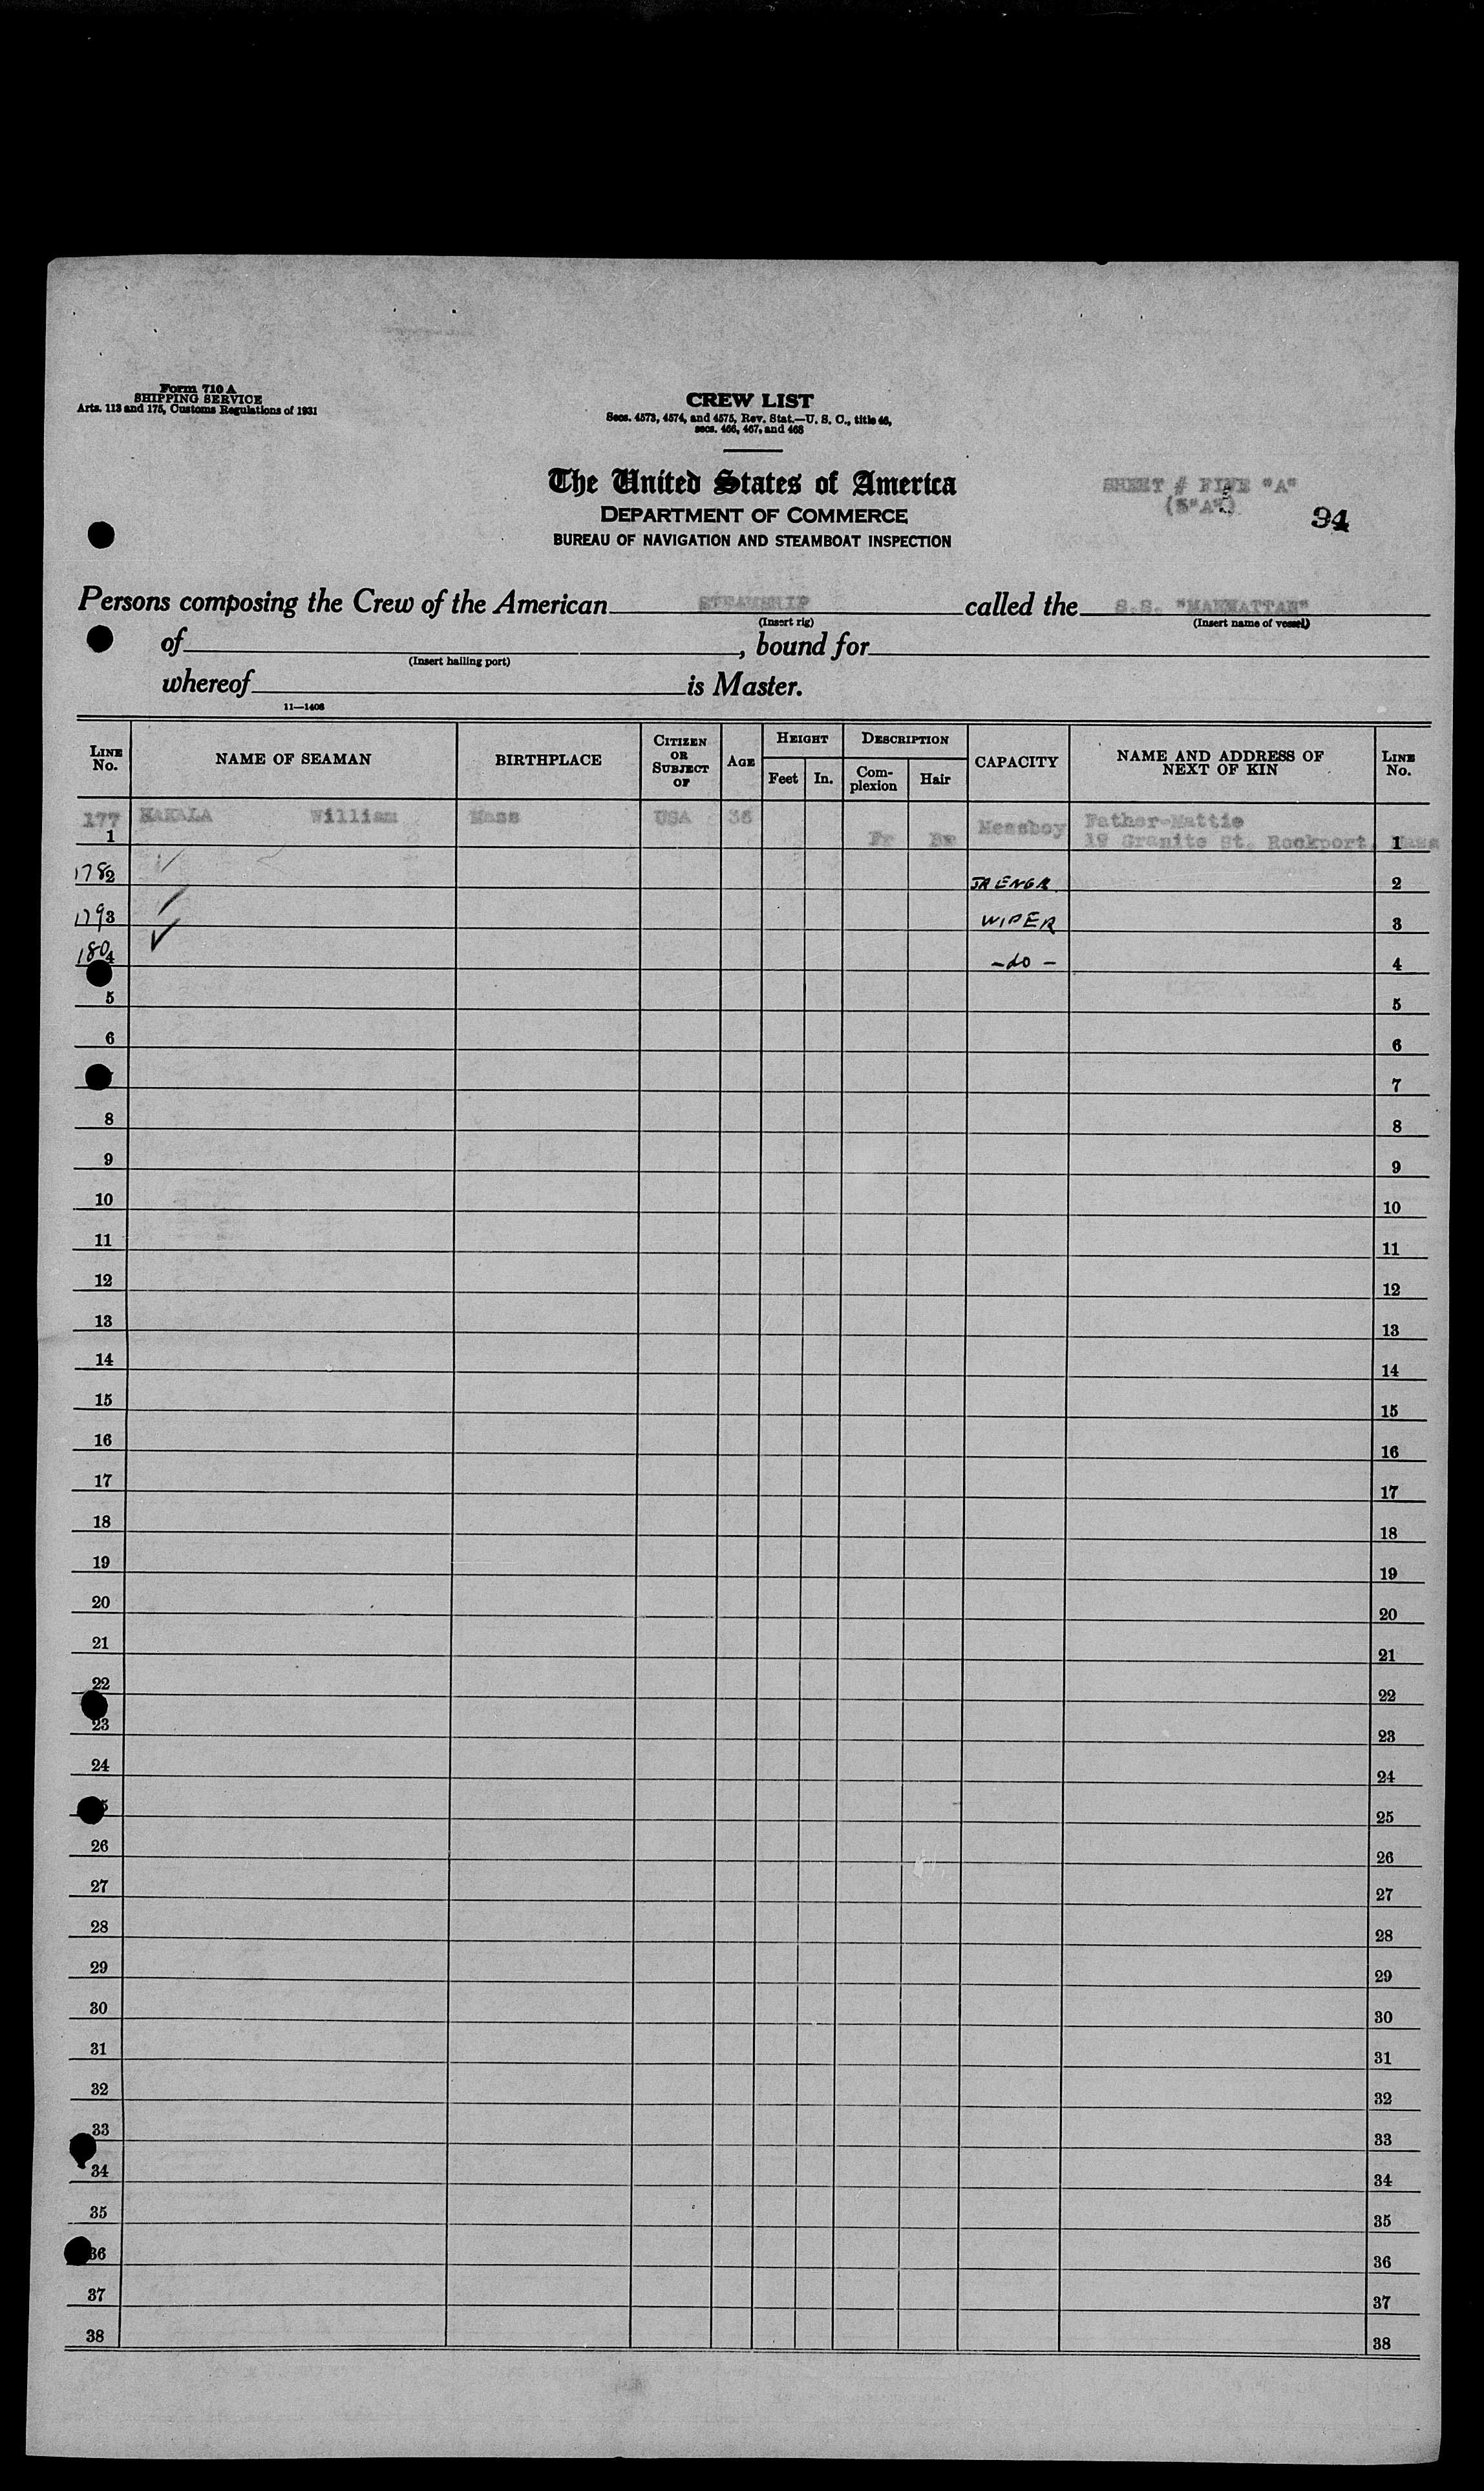 Form 710 A
SHIPPING SERVICE
Arts. 113 and 175, Customs Regulations of 1931
CREW LIST
Secs. 4573, 4574, and 4575, Rev. Stat.—U. S. C., title 46,
secs. 466, 467, and 468
The United States of America
DEPARTMENT OF COMMERCE
BUREAU OF NAVIGATION AND STEAMBOAT INSPECTION
SHEET # FIVE "A"
(5"A")
94
Persons composing the Crew of the American STEAMSHIP called the S.S. "MANHATTAN"
(Insert rig) (Insert name of vessel)
of , bound for
(Insert hailing port)
whereof is Master.
11—1406
LINE No. NAME OF SEAMAN BIRTHPLACE CITIZEN OR SUBJECT OF AGE HEIGHT Feet In. DESCRIPTION Com-plexion Hair CAPACITY NAME AND ADDRESS OF NEXT OF KIN LINE No.
177 William Mass USA 36 Messboy Father-Mattie
1 Fr Br 19 Granite St. Rockport, Mass 1
178 2 JR ENGR. 2
179 3 WIPER 3
180 4 -do- 4
5 5
6 6
7
8 8
9 9
10 10
11 11
12 12
13 13
14 14
15 15
16 16
17 17
18 18
19 19
20 20
21 21
22 22
23 23
24 24
25
26 26
27 27
28 28
29 29
30 30
31 31
32 32
33 33
34 34
35 35
36 36
37 37
38 38